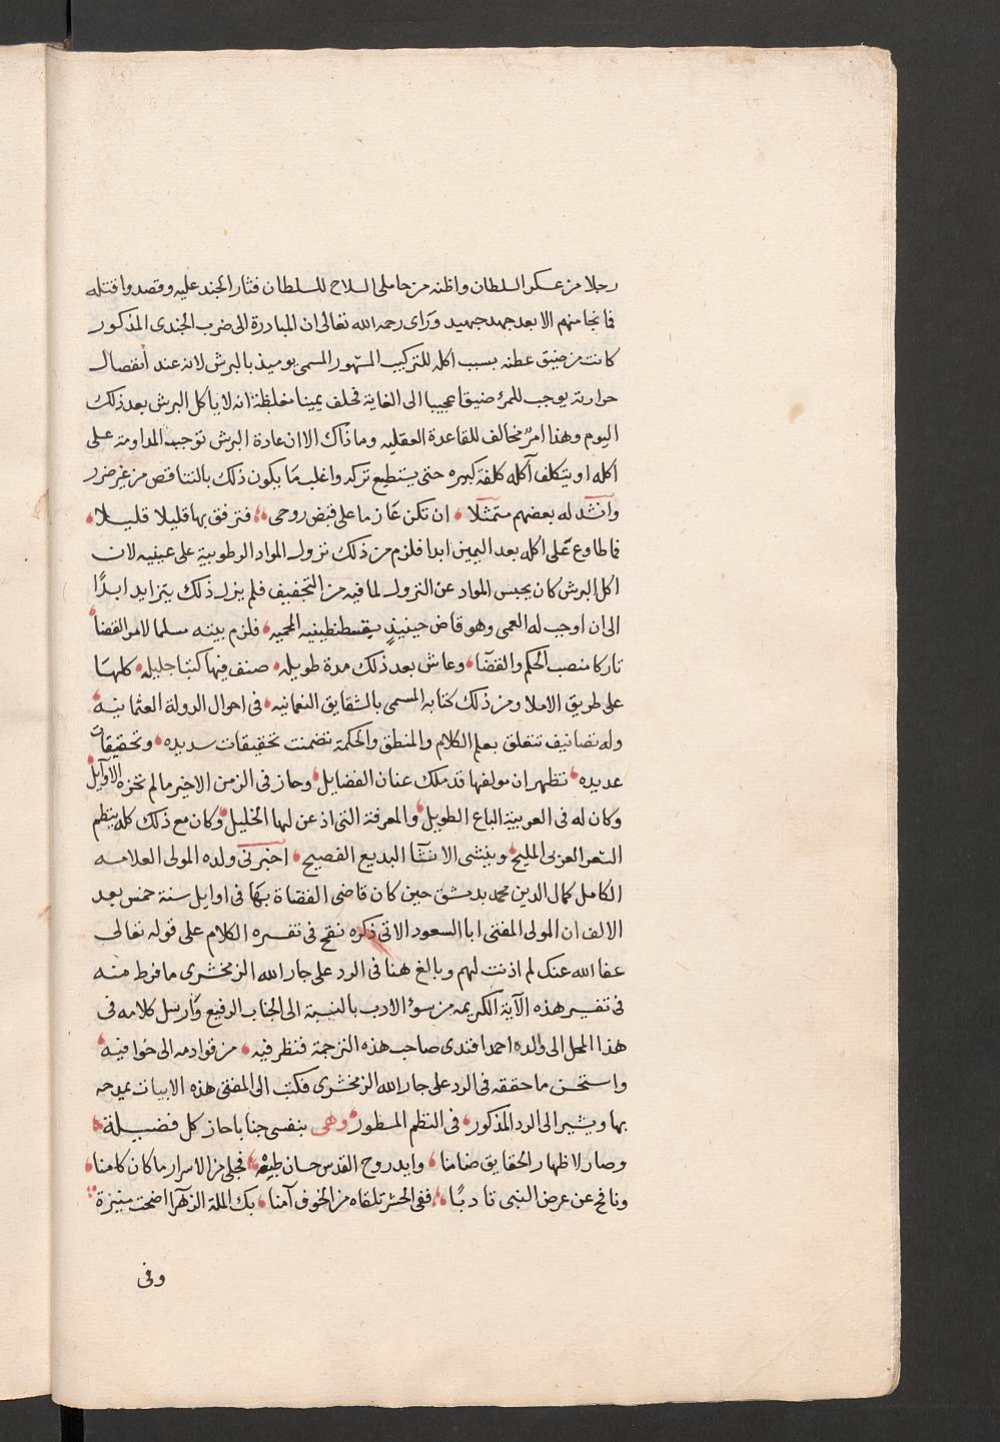 رجلا من عسكر السلطان واظنه من حاملى السلاح للسلطان فثار الجند عليه وقصدوا قتله
فما نجا منهم الا بعد جهد جهيد وراى رحمه الله تعالى ان المبادرة الى ضرب الجندى المذكور
كانت من ضيق عطنه بسبب اكله للتركيب المشهور المسمى يوميذ بالبرش لانه عند انفصال
حرارته يوجب للمرء ضيقا عجيبا الى الغاية فحلف يمينا مغلظة انه لا ياكل البرش بعد ذلك
اليوم وهذا امر مخالف للقاعدة العقليه وما ذاك الا ان عادة البرش توجب المداومة على
اكله او يتكلف آكله كلفة كبيره حتى يستطيع تركه واغلب ما يكون ذلك بالتناقص من غير ضرر
وانشد له بعضهم متمثلا ، ان تكن عازما على قبض روحى ، فترفق بها قليلا قليلا ،
فما طاوع على اكله بعد اليمين ابدا فلزم من ذلك نزول المواد الرطوبية على عينيه لان
اكل البرش كان يحبس المواد عن النزول لما فيه من التجفيف فلم يزل ذلك يتزايد ابدًا
الى ان اوجب له العمى وهو قاض حينيذٍ بقسطنطينيه المحميه ، فلزم بيته مسلما لامر القضا ،
تاركا منصب الحكم والقضا ، وعاش بعد ذلك مدة طويله ، صنف فيها كتبا جليله ، كلها
على طريق الاملا ومن ذلك كتابه المسمى بالشقايق النعمانيه ، فى احوال الدولة العثمانيه ،
وله تصانيف تتعلق بعلم الكلام والمنطق والحكمة تضمنت تحقيقات سديده ، وتحقيقات
عديده ، تظهر ان مولفها قد ملك عنان الفضايل ، وحاز فى الزمن الاخير ما لم تحزه الاوآيل ،
وكان له فى العربية الباع الطويل ، والمعرفة التى اذعن لها الخليل ، وكان مع ذلك كله ينظم
الشعر العربى المليح ، وينشى الانشآ البديع الفصيح ، اخبرنى ولده المولى العلامه
الكامل كمال الدين محمد بدمشق حين كان قاضى القضاة بها فى اوايل سنة خمس بعد
الالف ان المولى المفتى ابا السعود الاتى ذكره نقح فى تفسيره الكلام على قوله تعالى
عفا الله عنك لم اذنت لهم وبالغ هنا فى الرد على جار الله الزمخشرى ما فرط منه
فى تفسير هذه الآية الكريمه من سؤ الادب بالنسبة الى الجناب الرفيع وارسل كلامه فى
هذا المحل الى والده احمد افندى صاحب هذه الترجمة فنظر فيه ، من قوادمه الى خوافيه ،
واستحسن ما حققه فى الرد على جار الله الزمخشرى فكتب الى المفتى هذه الابيات يمدحه
بها ويشير الى الرد المذكور ، فى النظم المسطور ، وهى بنفسى جنابا حاز كل فضيلة ،
وصار لاظهار الحقايق ضامنا ، وايد روح القدس حسان طبعه ، فجلى من الاسرار ما كان كامنا ،
ونافح عن عرض النبى تادبًا ، ففى الحشر تلقاه من الخوف آمنا ، بك الملة الزهرآ اضحت منيرة ،
وفى